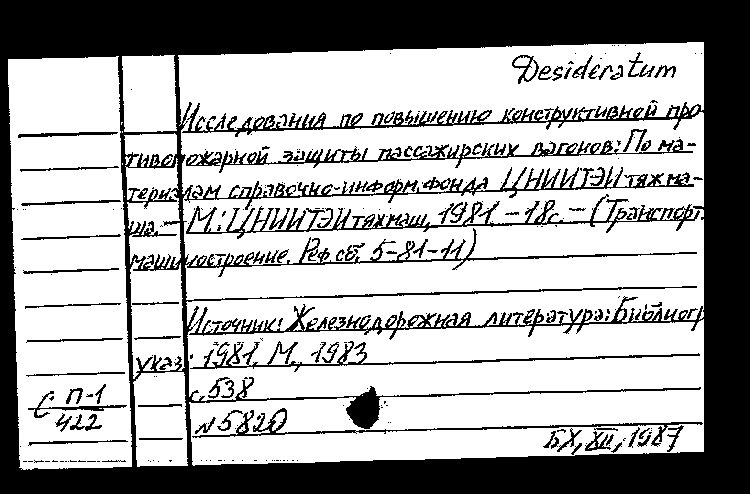 Desideratum
Исследования по повышению конструктивной про-
тивопожарной защиты пассажирских вагонов: По ма-
териалам справочно-информ. фонда ЦНИИТЭИтяжма-
ша. — М.: ЦНИИТЭИтяжмаш, 1981. — 18с. — (Транспорт.
машиностроение. Реф. сб. 5-81-11)
Источник: Железнодорожная литература: Библиогр
указ.: 1981. М., 1983
с. 538
№ 5820
С П-1
422
БХ, XII, 1987